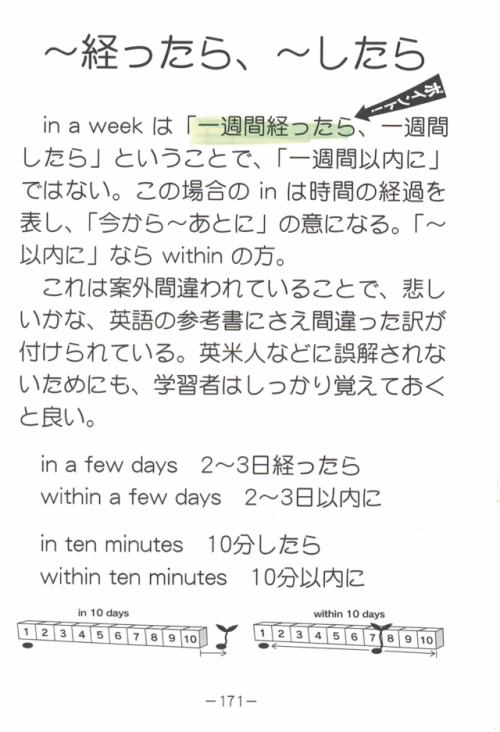 ～経ったら、～したら
ポイント！
in a week は「一週間経ったら、一週間
したら」ということで、「一週間以内に」
ではない。この場合の in は時間の経過を
表し、「今から～あとに」の意になる。「～
以内に」なら within の方。
これは案外間違われていることで、悲し
いかな、英語の参考書にさえ間違った訳が
付けられている。英米人などに誤解されな
いためにも、学習者はしっかり覚えておく
と良い。
in a few days 2～3日経ったら
within a few days 2～3日以内に
in ten minutes 10分したら
within ten minutes 10分以内に
in 10 days
1 2 3 4 5 6 7 8 9 10
within 10 days
1 2 3 4 5 6 7 8 9 10
－171－